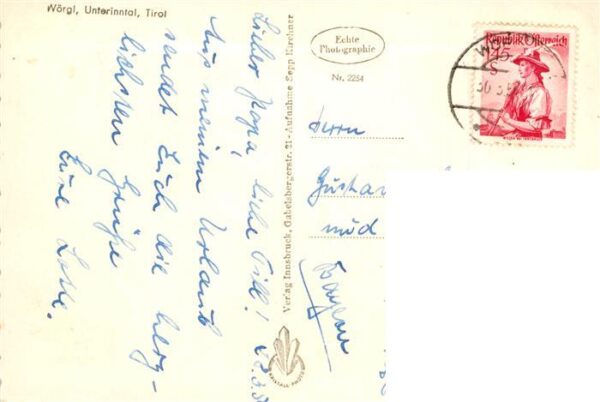 Wörgl, Unterinntal, Tirol
Lieber Papa, liebe Cill!
Aus meinem Urlaub
sendet Euch die herz-
lichsten Grüße
Eure Lotte.
Verlag Innsbruck, Gabelsbergerstr. 21 - Aufnahme Sepp Kirchner
KRISTALL-PHOTO
Echte
Photographie
Nr. 2254
Herrn
Gustav
Bayern
Republik Österreich
1.45
S